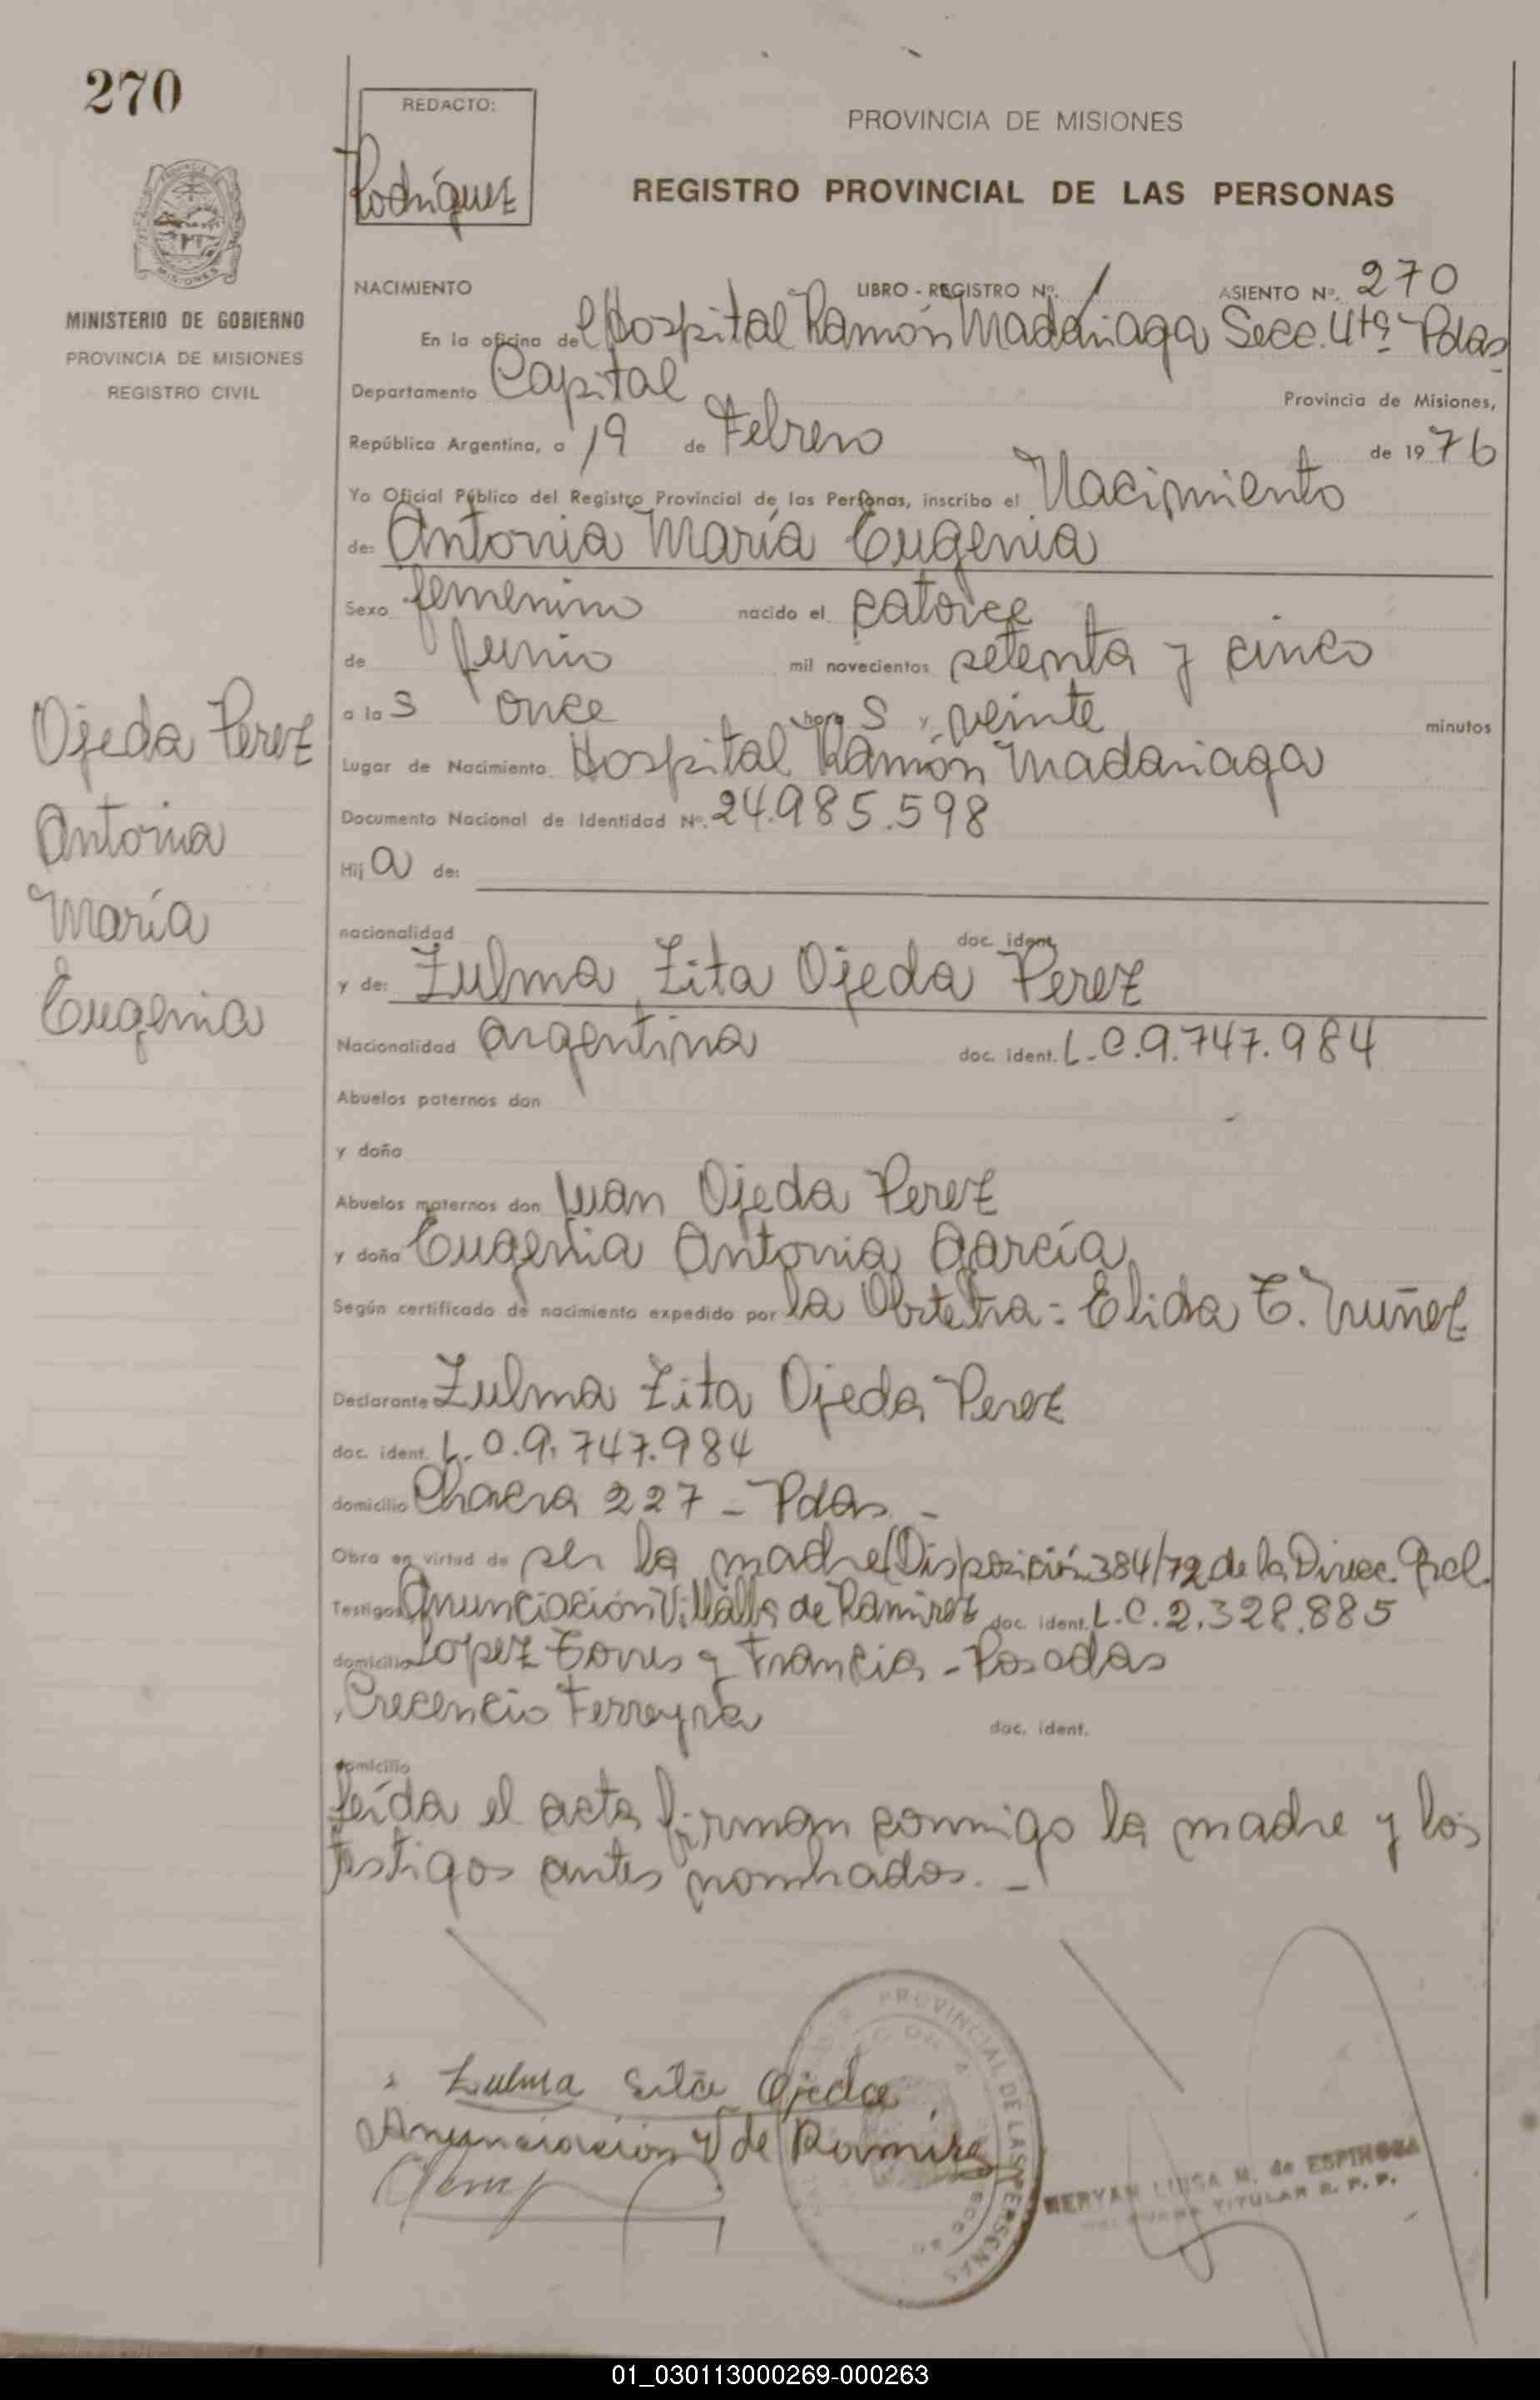 270
REDACTO:
Rodríguez
PROVINCIA DE MISIONES
REGISTRO PROVINCIAL DE LAS PERSONAS
MINISTERIO DE GOBIERNO
PROVINCIA DE MISIONES
REGISTRO CIVIL
NACIMIENTO LIBRO - REGISTRO Nº. 1 ASIENTO Nº. 270
En la oficina del Hospital Ramón Madariaga Secc. 4tª Pdas
Departamento Capital Provincia de Misiones,
República Argentina, a 19 de Febrero de 1976
Yo Oficial Público del Registro Provincial de las Personas, inscribo el Nacimiento
de: Antonia María Eugenia
Sexo femenino nacido el catorce
de Junio mil novecientos setenta y cinco
a las once horas y veinte minutos
Lugar de Nacimiento Hospital Ramón Madariaga
Documento Nacional de Identidad Nº. 24.985.598
Hija de:
nacionalidad doc. ident.
y de: Zulma Zita Ojeda Perez
Nacionalidad argentina doc. ident. L.C.9.747.984
Abuelos paternos don
y doña
Abuelos maternos don Juan Ojeda Perez
y doña Eugenia Antonia García
Según certificado de nacimiento expedido por la Obstetra: Elida E. Nuñez
Declarante Zulma Zita Ojeda Perez
doc. ident. L.C.9.747.984
domicilio Chacra 227 - Pdas. -
Obra en virtud de ser la madre (Disposición 384/72 de la Direc. Gral.
Testigos Anunciación Villalba de Ramirez doc. ident. L.C.2.328.885
domicilio Lopez Torres y Francia - Posadas
y Crecencio Ferreyra doc. ident.
domicilio
Leída el acta firman conmigo la madre y los
testigos antes nombrados. -
Ojeda Perez
Antonia
María
Eugenia
Zulma Sita Ojeda
Anunciacion V de Ramirez
PROVINCIAL DE LAS PERSONAS
MERYAN LUISA M. de ESPINOSA
TITULAR R. P. P.
01_030113000269-000263